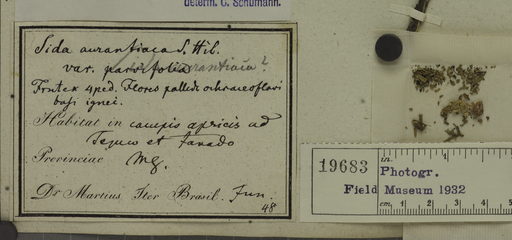 determ. C. Schumann.
Sida aurantiaca S. Hil.
var. parvifolia aurantiaca?
Frutex 4ped. Flores pallidi ochraceoflavi
basi ignei.
Habitat in campis apricis ad
Tejuco et
Provinciae Mg.
Dr Martius Iter Brasil. Jun.
48
19683 in.
Photogr.
Field Museum 1932
cm. 1 2 3 4 5